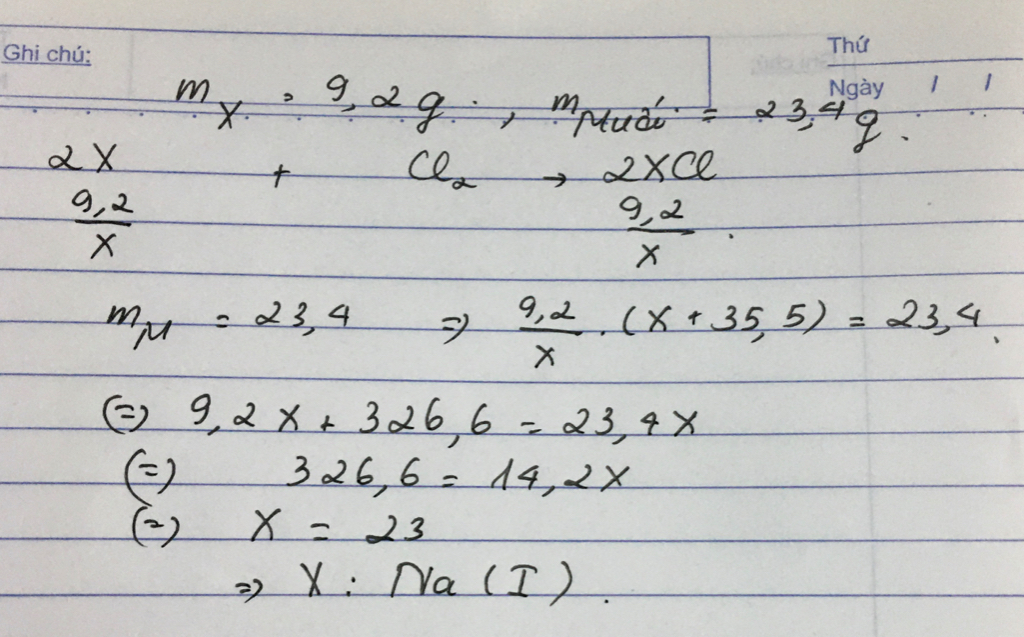 Ghi chú:
Thứ
Ngày / /
m_X = 9,2 g , m_Muối = 23,4 g.
2X + Cl₂ → 2XCl
9,2/X 9,2/X .
m_M = 23,4 => 9,2/X . (X + 35,5) = 23,4.
(=) 9,2X + 326,6 = 23,4X
(=) 326,6 = 14,2X
(=) X = 23
=> X : Na (I).